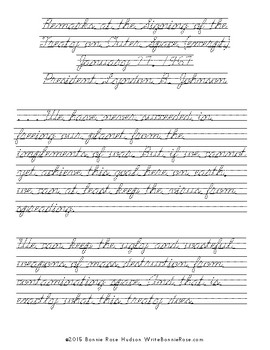 Remarks at the Signing of the
Treaty on Outer Space (excerpt)
January 27, 1967
President Lyndon B. Johnson
. . . We have never succeeded in
freeing our planet from the
implements of war. But if we cannot
yet achieve this goal here on earth,
we can at least keep the virus from
spreading.
We can keep the ugly and wasteful
weapons of mass destruction from
contaminating space. And that is
exactly what this treaty does.
©2015 Bonnie Rose Hudson WriteBonnieRose.com